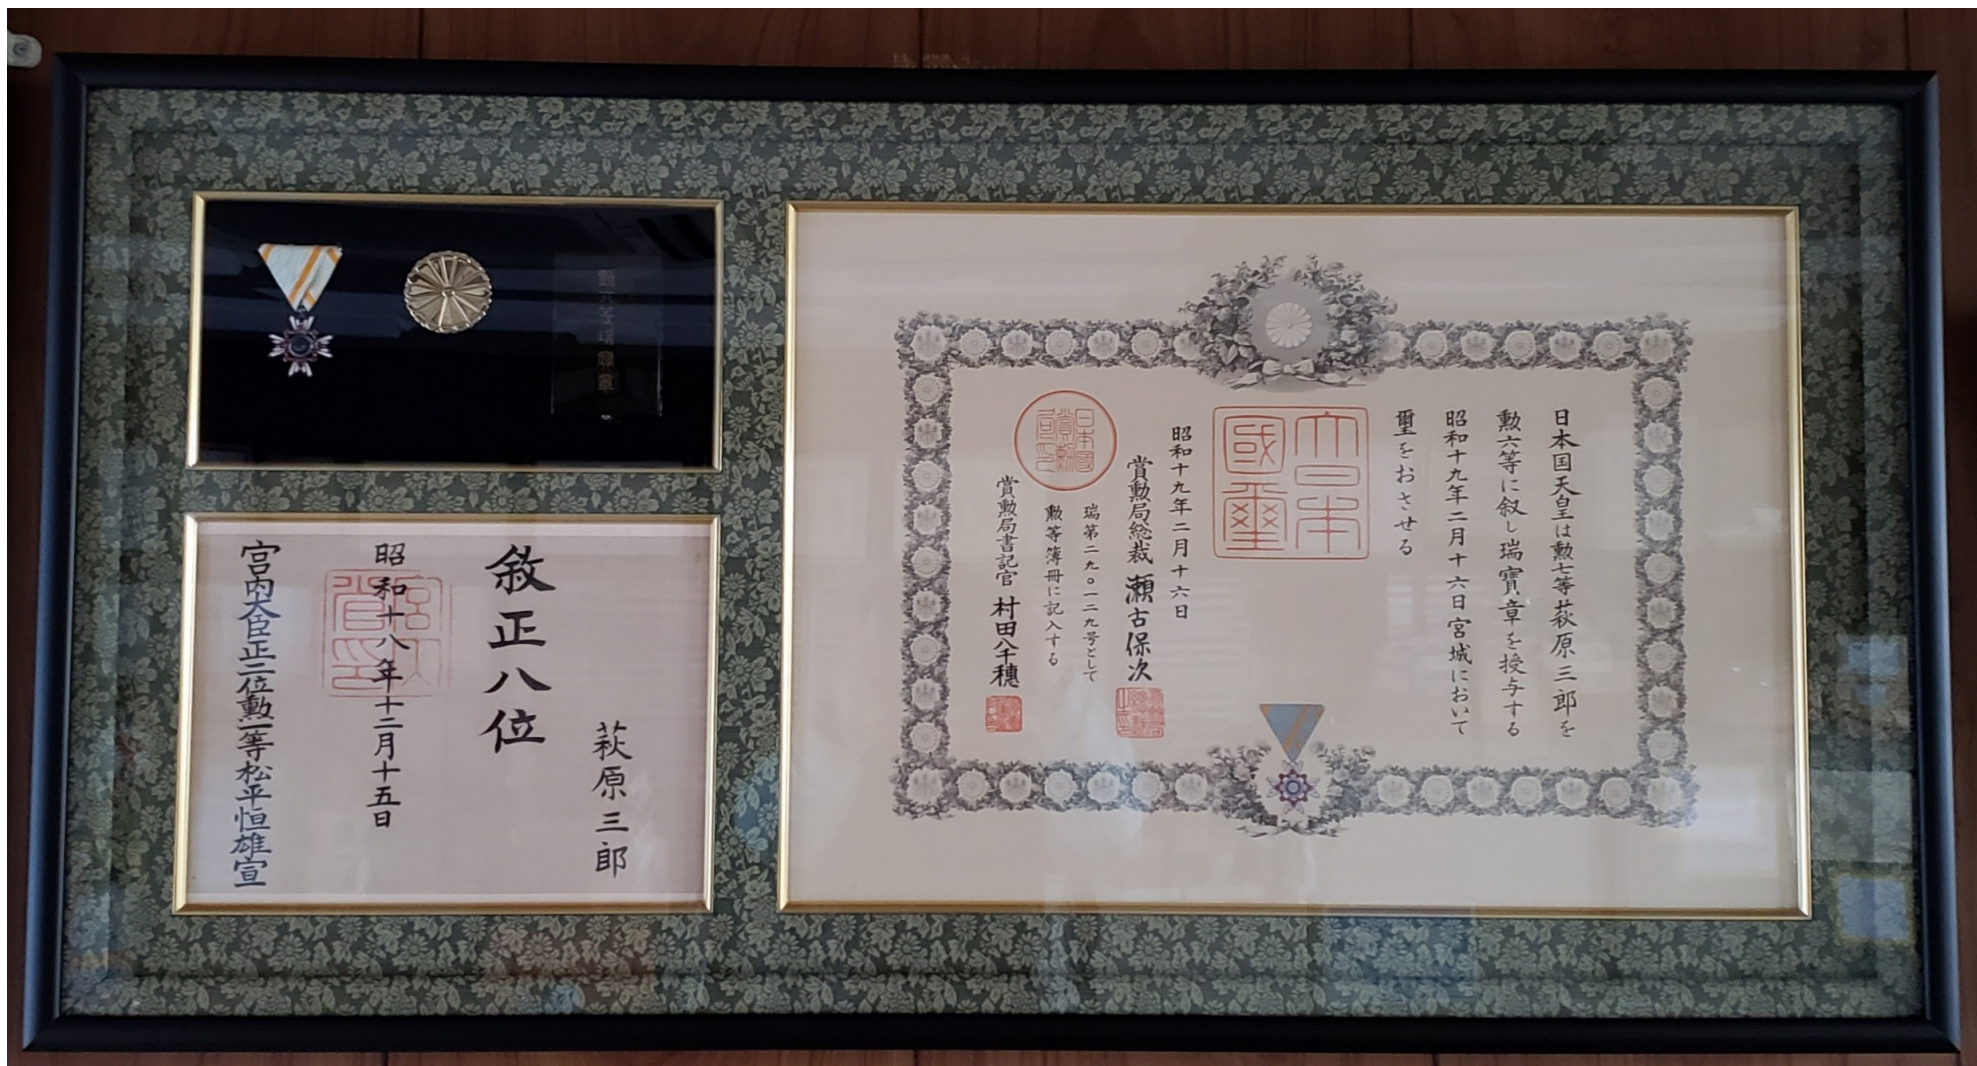 日本国天皇は勲七等萩原三郎を
勲六等に叙し瑞寶章を授与する
昭和十九年二月十六日宮城において
璽をおさせる
大日本
國璽
昭和十九年二月十六日
賞勲局総裁 瀬古保次
瑞第二九〇一二九号として
勲等簿冊に記入する
日本國
賞勲
局印
賞勲局書記官 村田八千穗
勲八等瑞寶章
萩原三郎
敘正八位
昭和十八年十二月十五日
宮内
省印
宮内大臣正二位勲一等松平恒雄宣